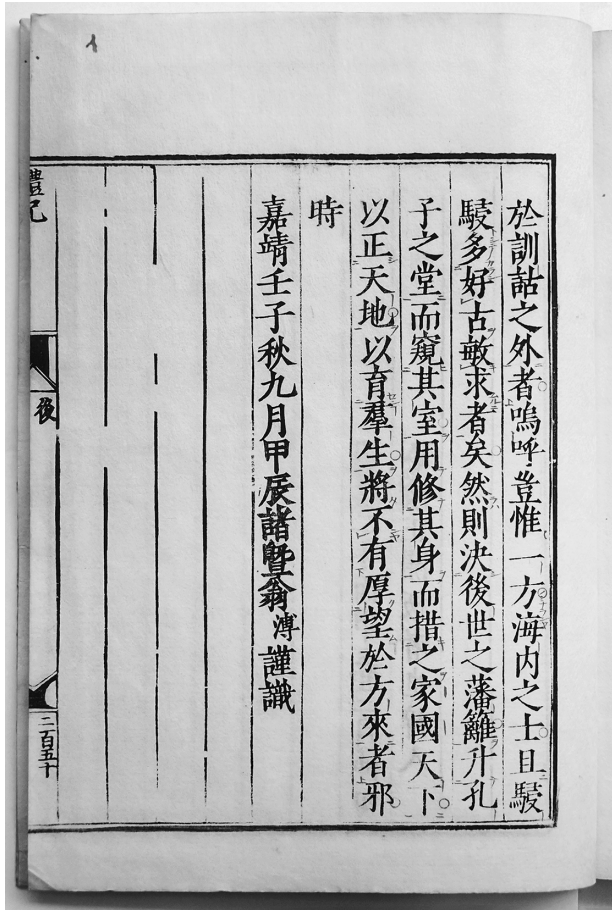 於訓詁之外者嗚呼豈惟一方海内之士且駸
駸多好古敏求者矣然則決後世之藩籬升孔
子之堂而窺其室用修其身而措之家國天下
以正天地以育羣生將不有厚望於方來者邪
時
嘉靖壬子秋九月甲辰諸曁翁溥謹識
禮記
後
二百五十